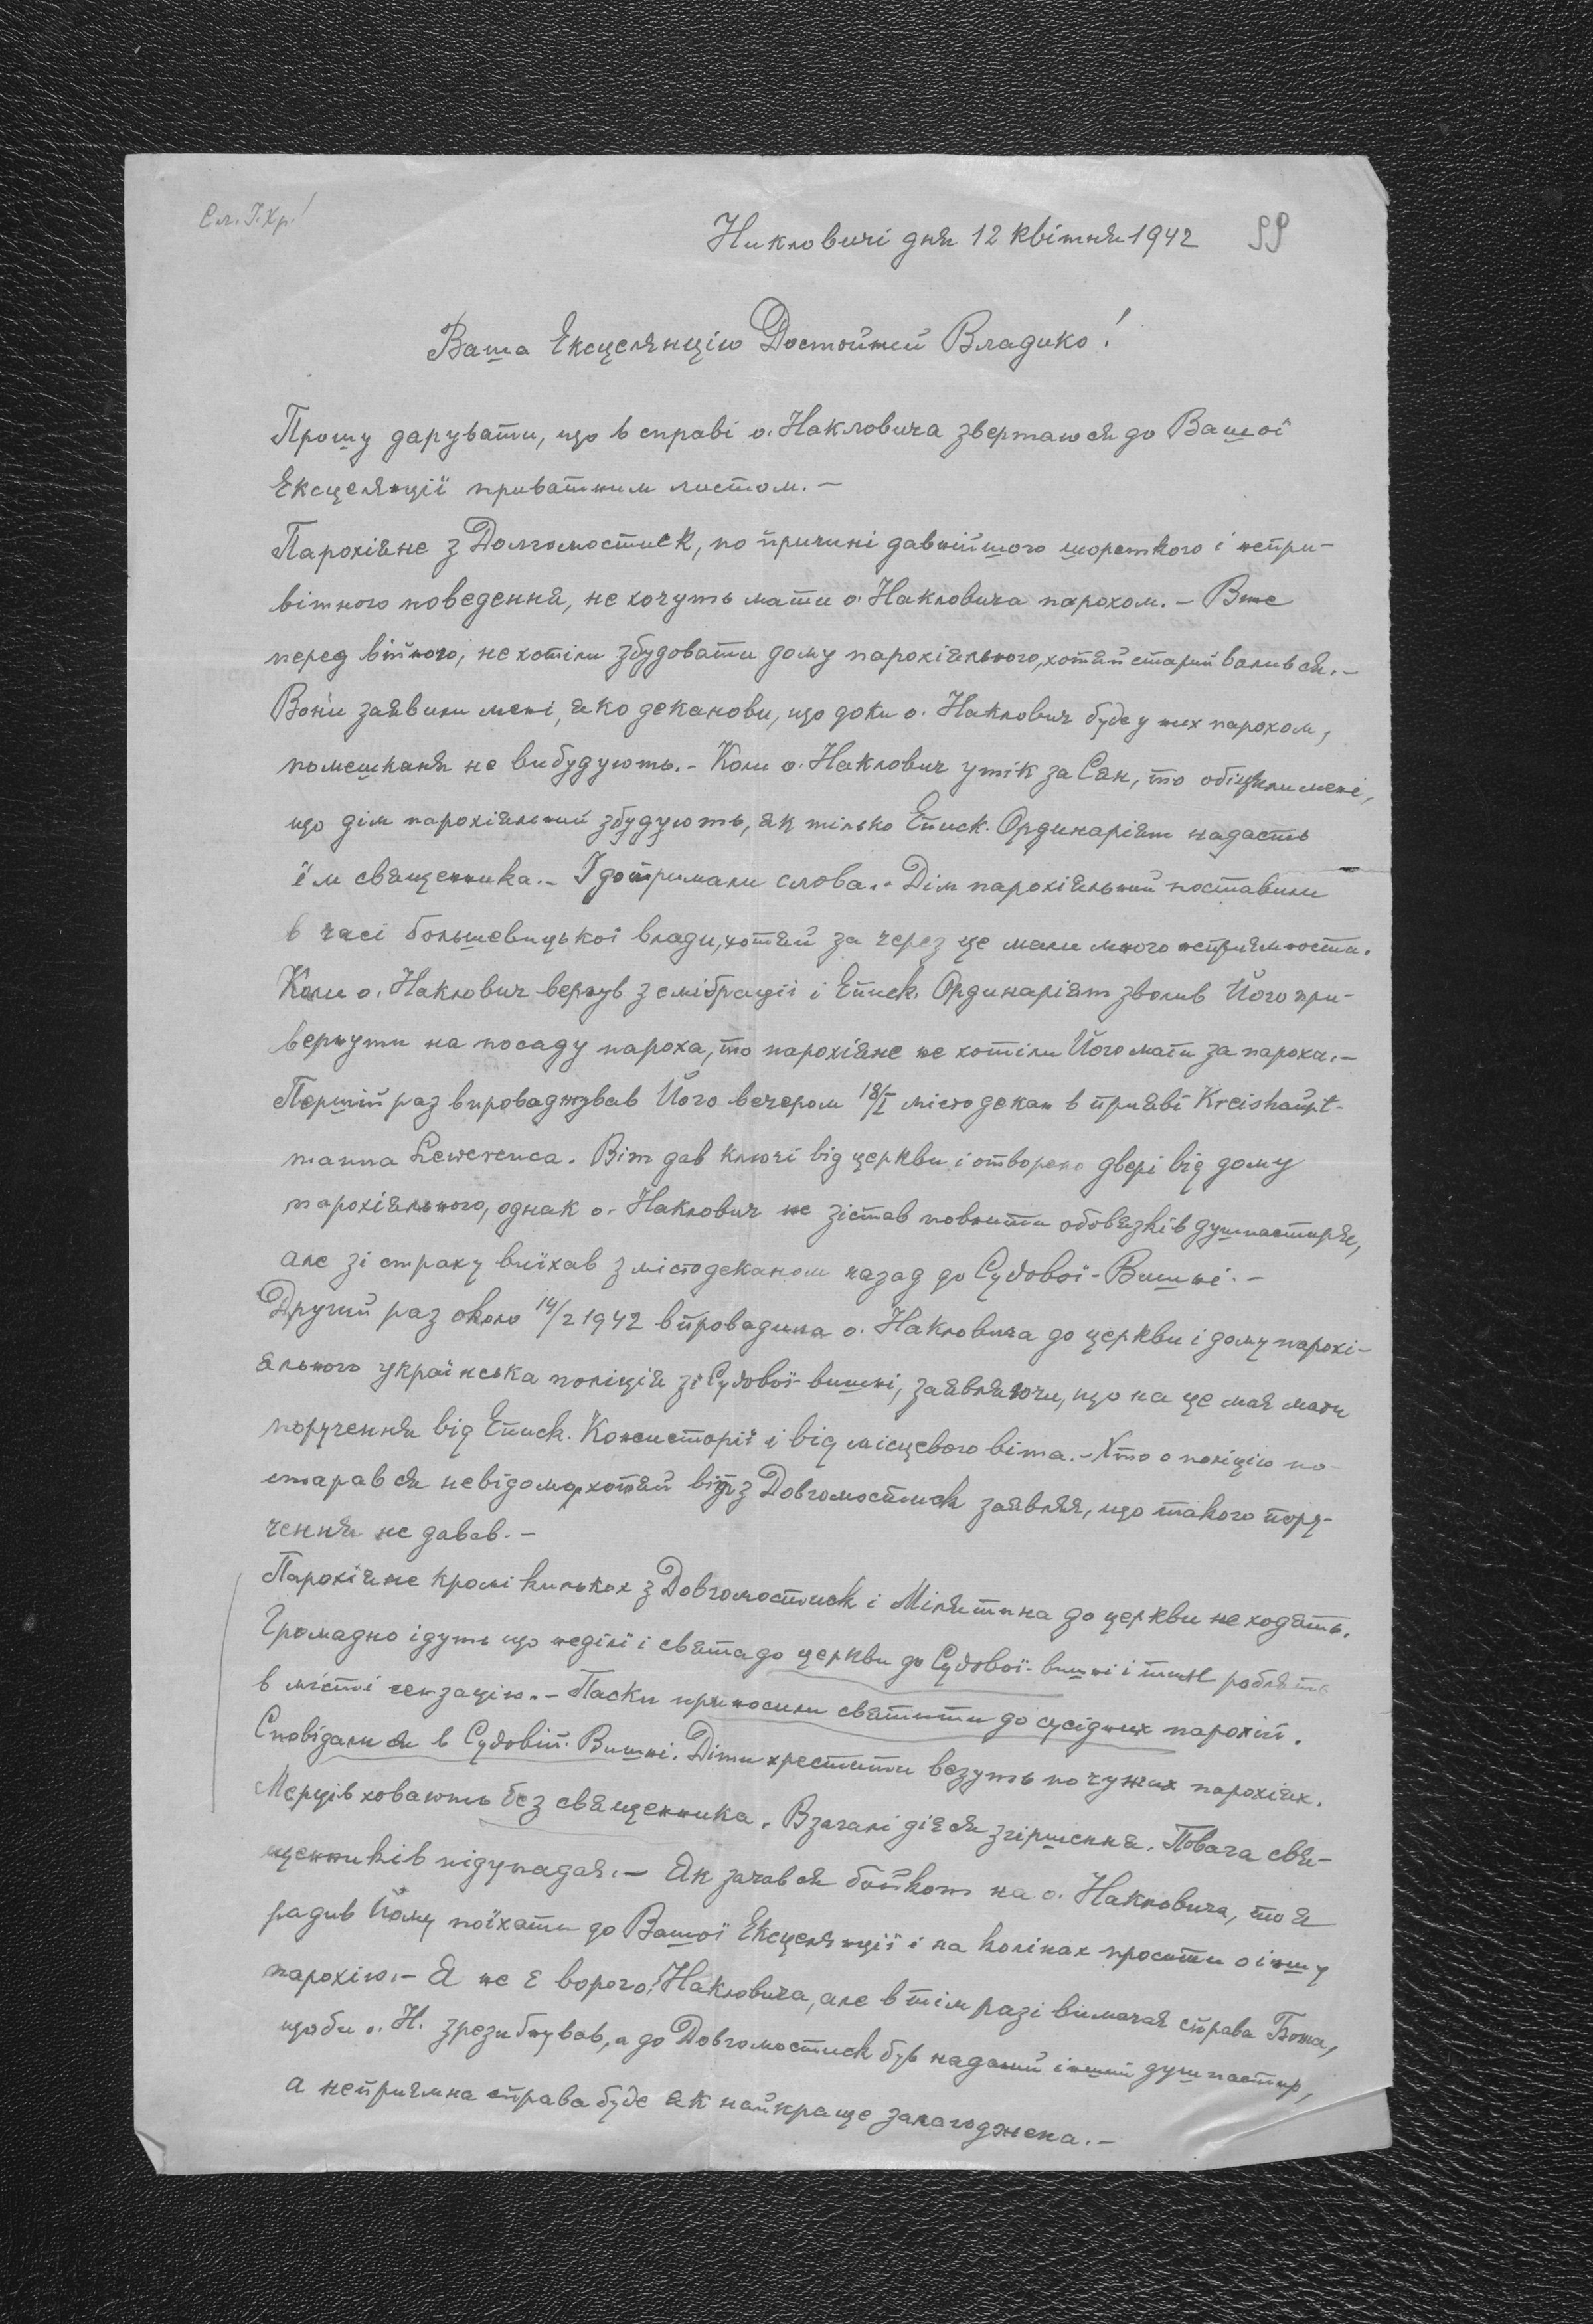 Сл. І. Хр!
Никловичі дня 12 квітня 1942 99
Ваша Ексцелянціє Достойний Владико!
Прошу дарувати, що в справі о. Накловича звертаюся до Вашої
Ексцелянції приватним листом. –
Парохіяне з Долгомостиск, по причині давнійшого шорсткого і непри-
вітного поведення, не хочуть мати о. Накловича парохом. – Вже
перед війною, не хотіли збудовати дому парохіяльного, хотяй старий валився. –
Вони заявили мені, яко деканови, що доки о. Наклович буде у них парохом,
помешканя не вибудують. – Коли о. Наклович утік за Сян, то обіцяли мені,
що дім парохіяльний збудують, як тілько Еписк. Ординаріят надасть
їм священника. – І дотримали слова. – Дім парохіяльний поставили
в часі большевицької влади, хотяй за через це мали много неприємности.
Коли о. Наклович вернув з еміґрації і Еписк. Ординаріят зволив Його при-
вернути на посаду пароха, то парохіяне не хотіли Його мати за пароха. –
Перший раз впроваджував Його вечером 18/I містодекан в прияві Kreishaupt-
manna Lewerenca. Віт дав ключі від церкви і отворено двері від дому
парохіяльного, однак о. Наклович не зістав повнити обовязків душпастиря,
але зі страху виїхав з містодеканом назад до Судової-Вишні. –
Другий раз около 14/2 1942 впровадила о. Накловича до церкви і дому парохі-
яльного українська поліція зі Судової-вишні, заявляючи, що на це мая мати
поручення від Еписк. Консисторії і від місцевого віта. – Хто о поліцію по-
старався невідомо, хотяй віт з Довгомостиск заявляя, що такого пору-
чення не давав. –
Парохіяне кромі кількох з Довгомостиск і Мілятина до церкви не ходять.
Громадно ідуть що неділі і свята до церкви до Судової-вишні і тим роблять
в місті сензацію. – Паски приносили святити до сусідних парохій.
Сповідалися в Судовій-Вишні. Діти хрестити везуть по чужих парохіях.
Мерців ховають без священника. Взагалі діяся згіршення. Повага свя-
щенників підупадая. – Як зачався бойкот на о. Накловича, то я
радив Йому поїхати до Вашої Ексцелянції і на колінах просити о іншу
парохію. – Я не є ворог о. Накловича, але в тім разі вимагая справа Божа,
щоби о. Н. зрезиґнував, а до Довгомостиск був наданий інший душпастир,
а неприємна справа буде як найкраще залагоджена. –